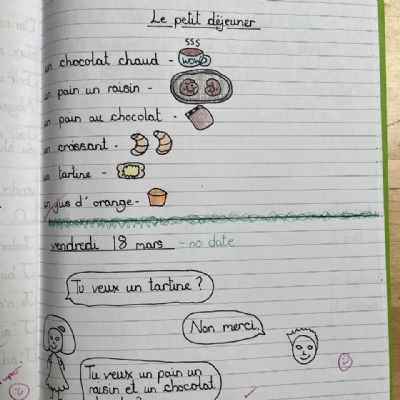 Le petit déjeuner
un chocolat chaud -
WOW
un pain un raisin -
un pain au chocolat -
un croissant -
un tartine -
un jus d'orange -
vendredi 18 mars - no date
Tu veux un tartine ?
Non merci.
Tu veux un pain un
raisin et un chocolat